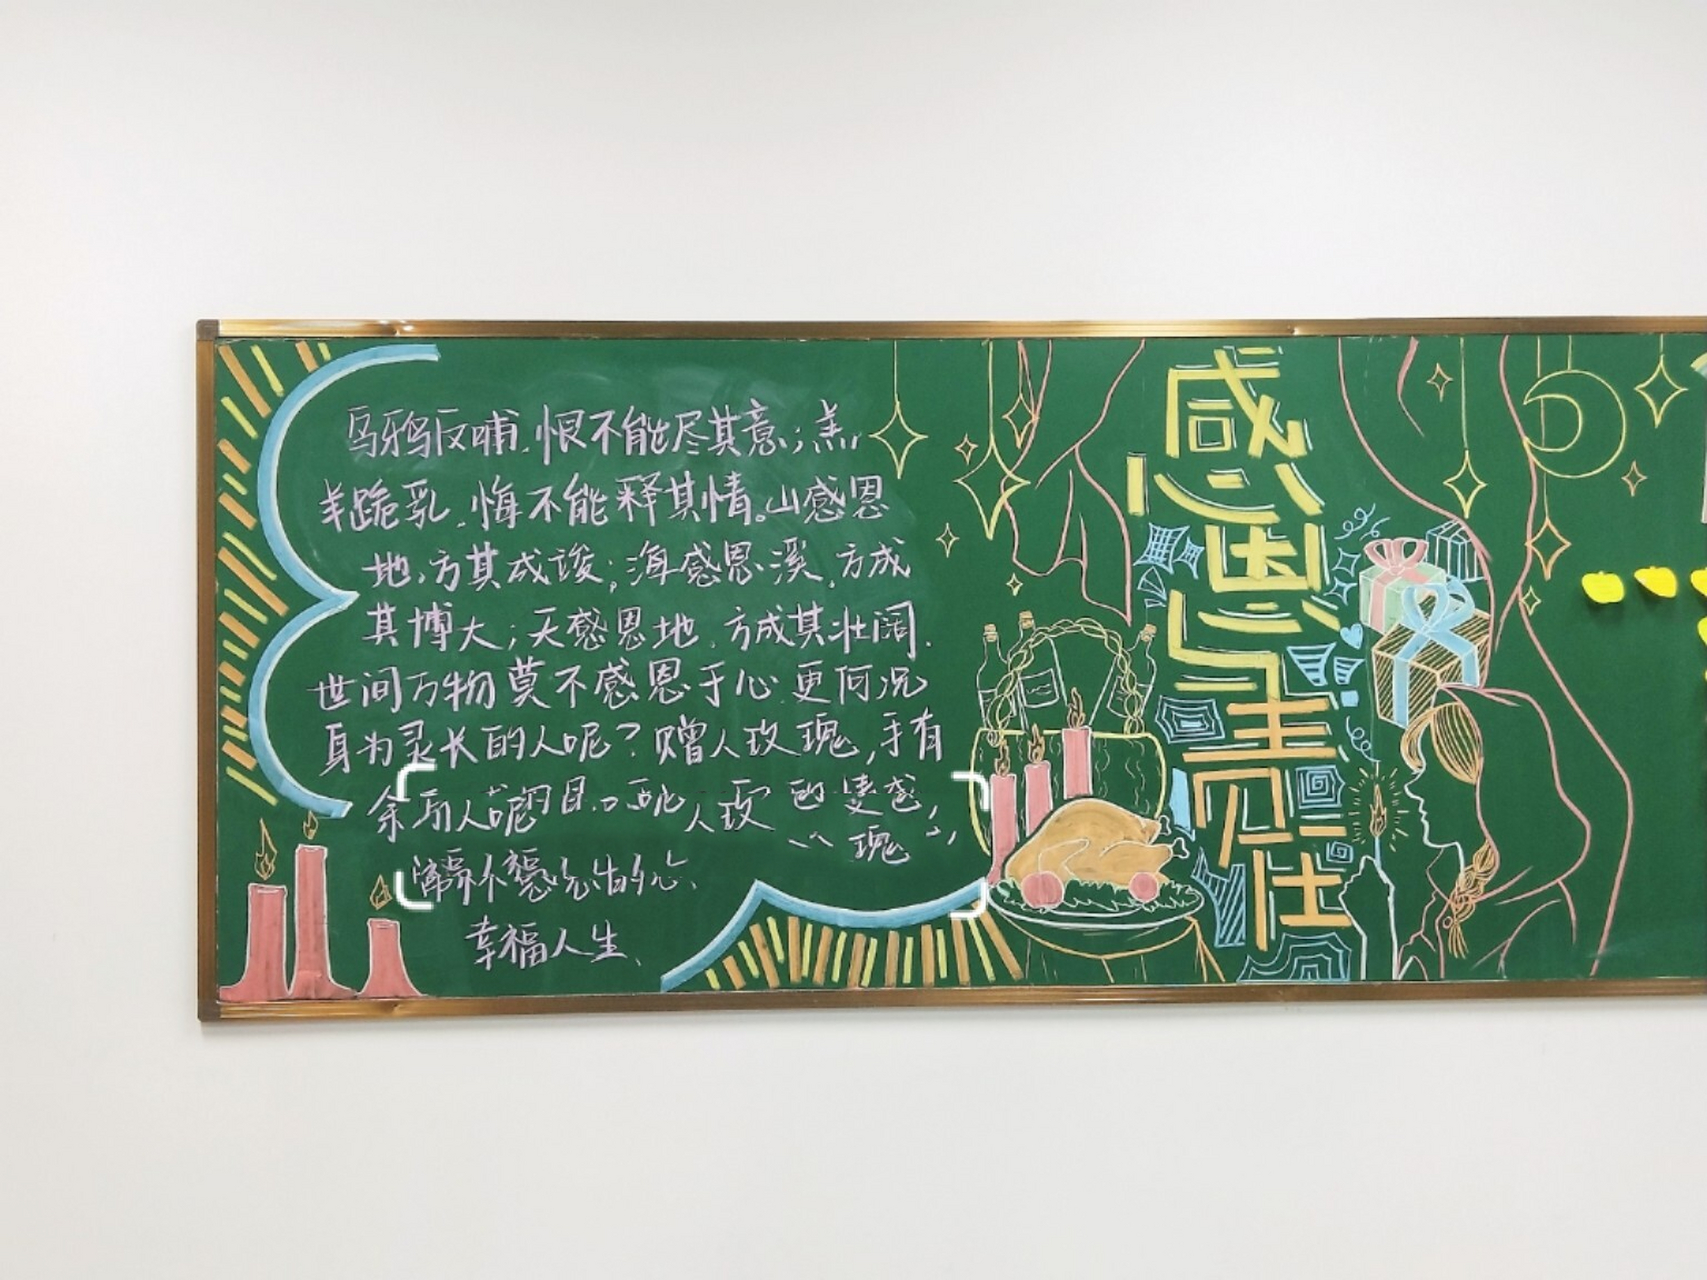 乌鸦反哺,恨不能尽其意;羔
羊跪乳,悔不能释其情。山感恩
地,方其成峻;海感恩溪,方成
其博大;天感恩地,方成其壮阔.
世间万物莫不感恩于心,更何况
身为灵长的人呢?赠人玫瑰,手有
余
人玫
瑰
幸福人生、
感恩与责任